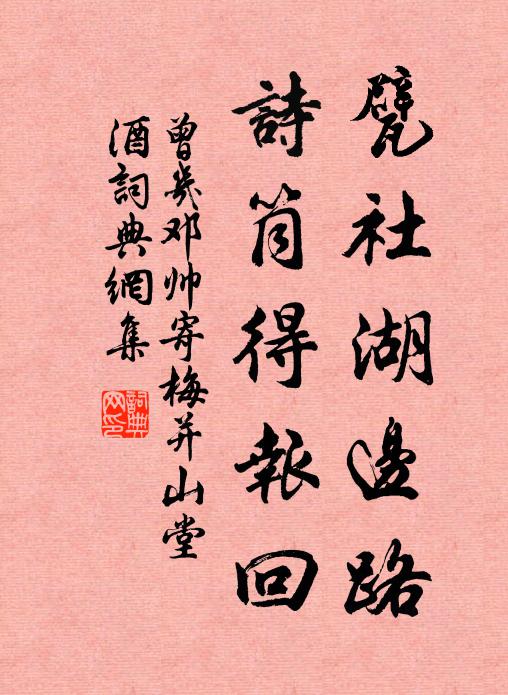 甓社湖邊路
詩筒得報回
曾幾邓帅寄梅并山堂
酒詞典網集
詞典网印